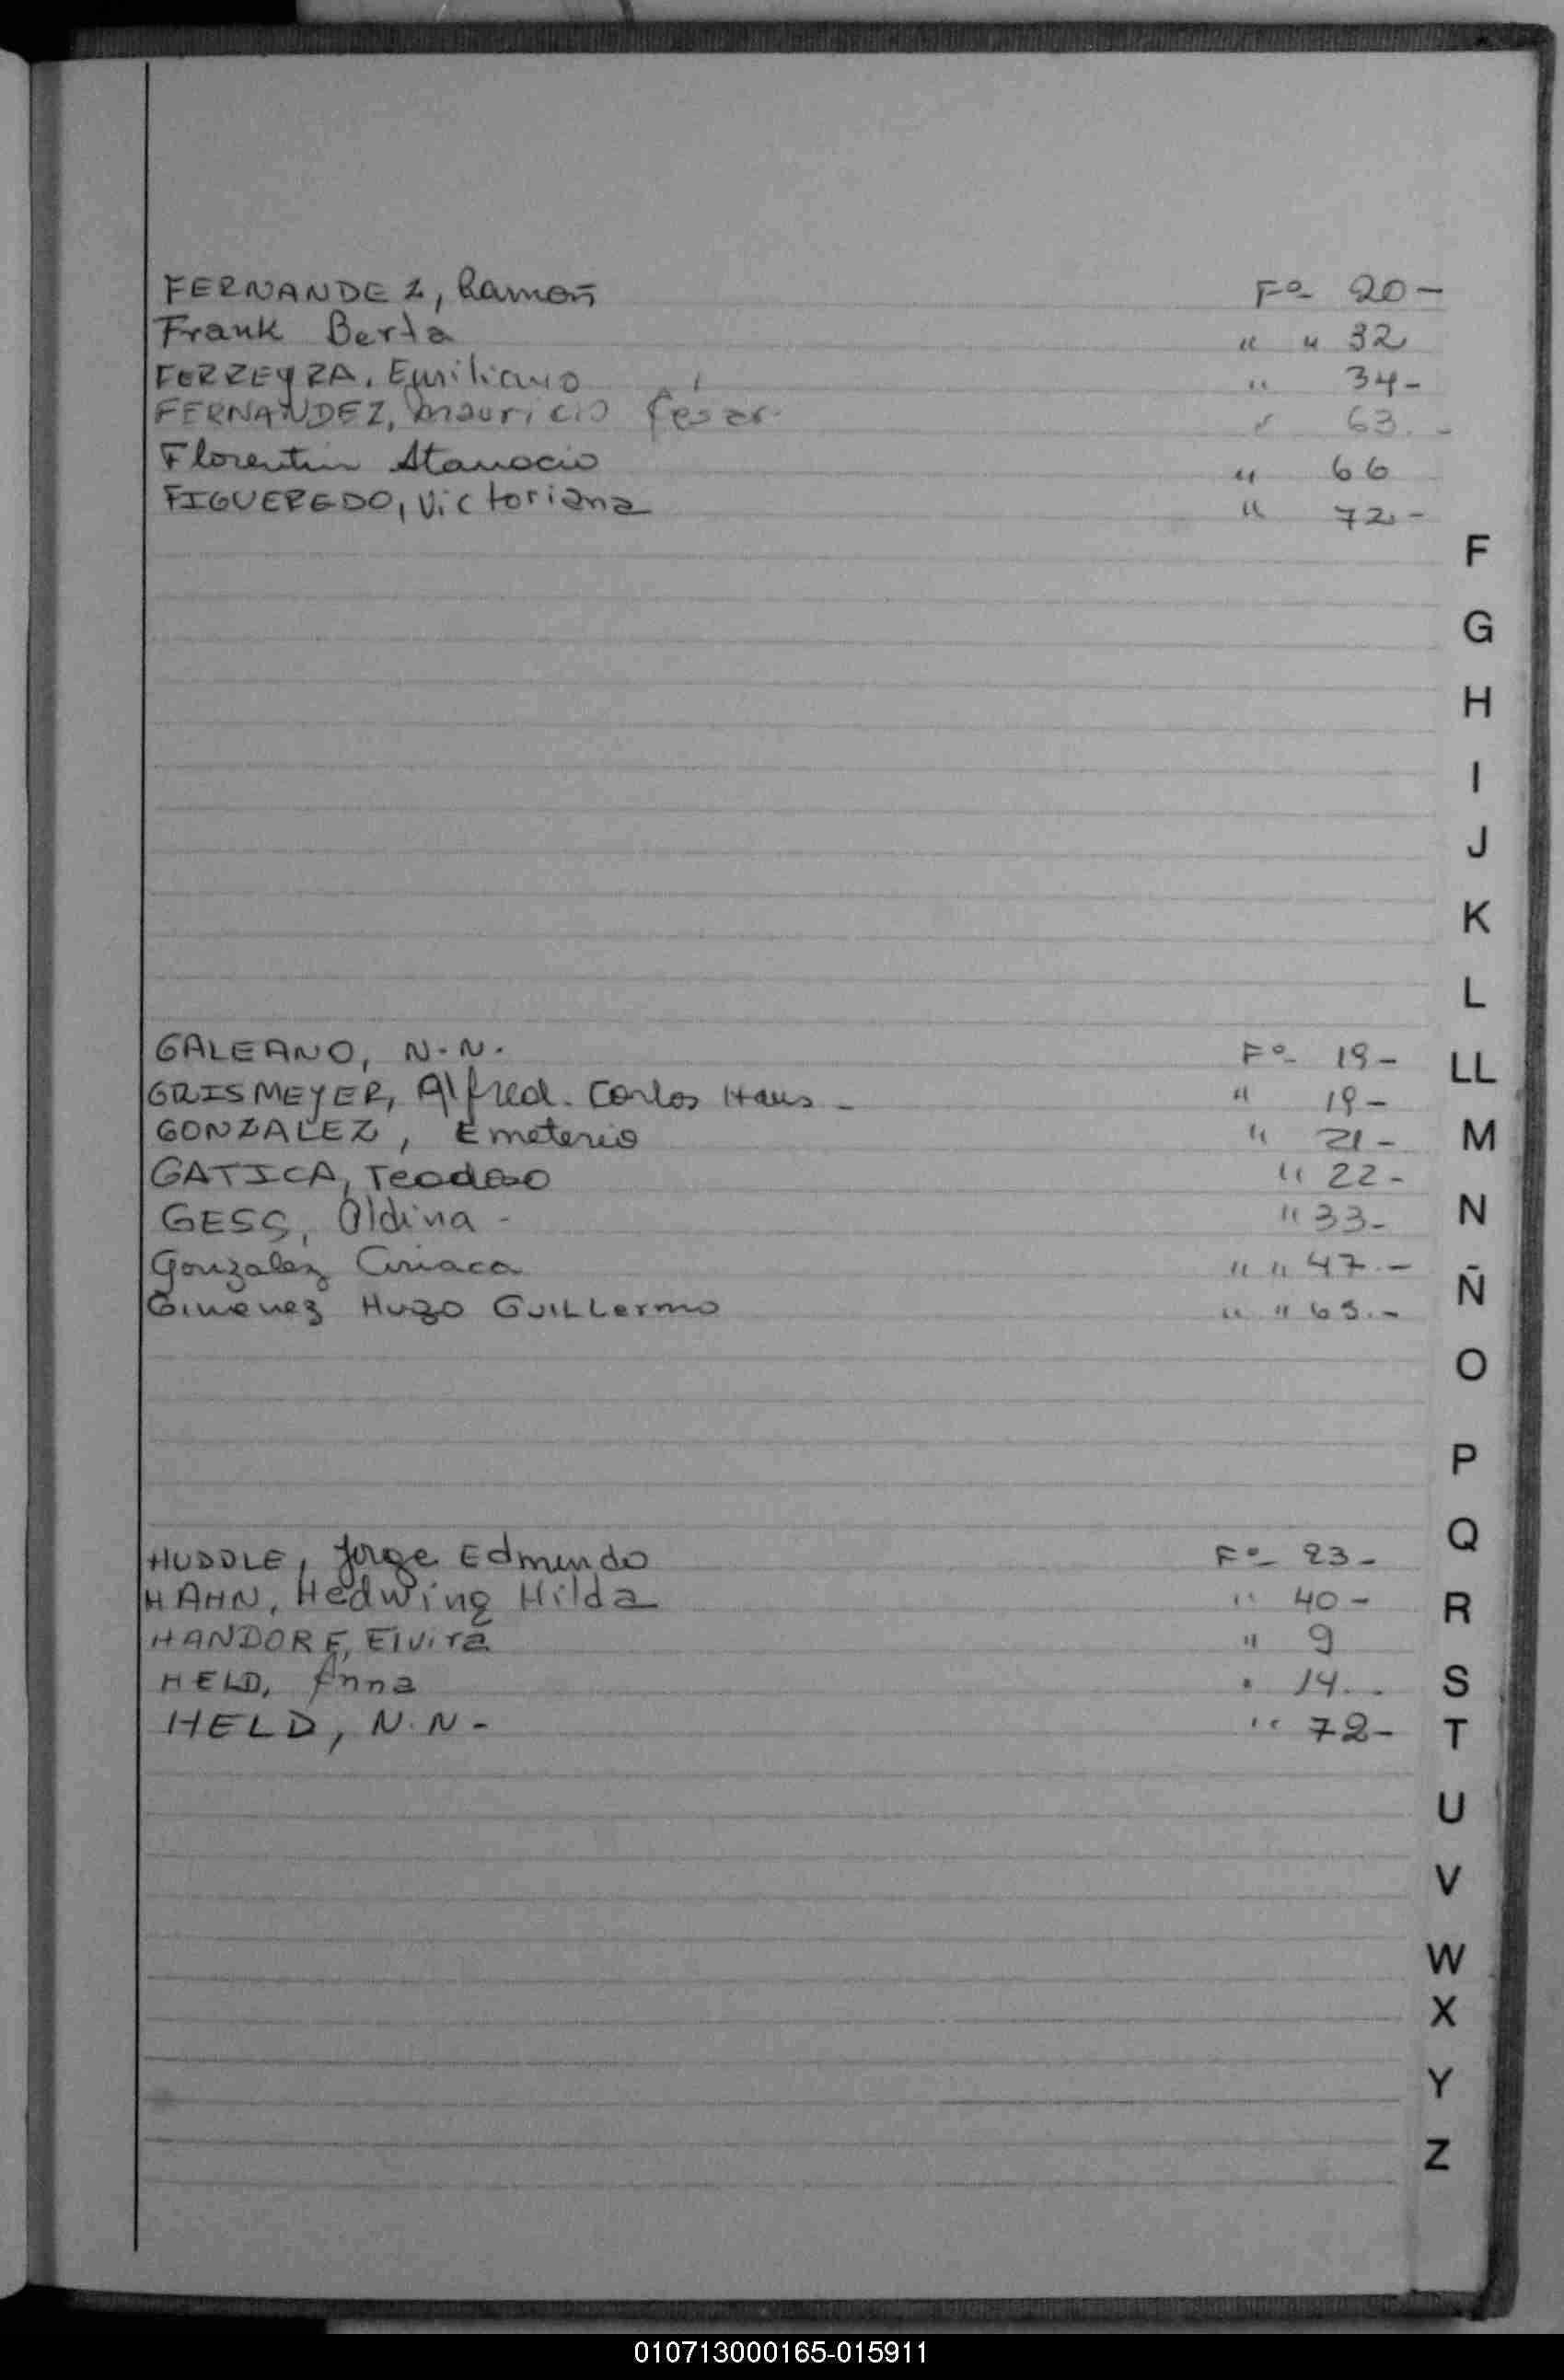 FERNANDEZ, Ramon Fº 20-
Frank Berta " " 32
FERREYRA, Emiliano " 34-
FERNANDEZ, Mauricio César. " 63.-
Florentin Atanocio " 66
FIGUEREDO, Victoriana " 72.-
F
G
H
I
J
K
L
GALEANO, N.N. Fº 19-
LL
GRISMEYER, Alfred. Carlos Hans - " 19-
GONZALEZ, Emeterio " 21-
M
GATICA, Teodoso " 22-
GESS, Aldina - " 33-
N
Gonzalez Ciriaca " " 47.-
Ñ
Gimenez Hugo GuiLLermo " " 65.-
O
P
Q
HUDDLE, Jorge Edmundo Fº 23-
HAHN, Hedwing Hilda " 40-
R
HANDORF, Elvira " 9
HELD, Anna " 14..
S
HELD, N.N- " 72-
T
U
V
W
X
Y
Z
010713000165-015911